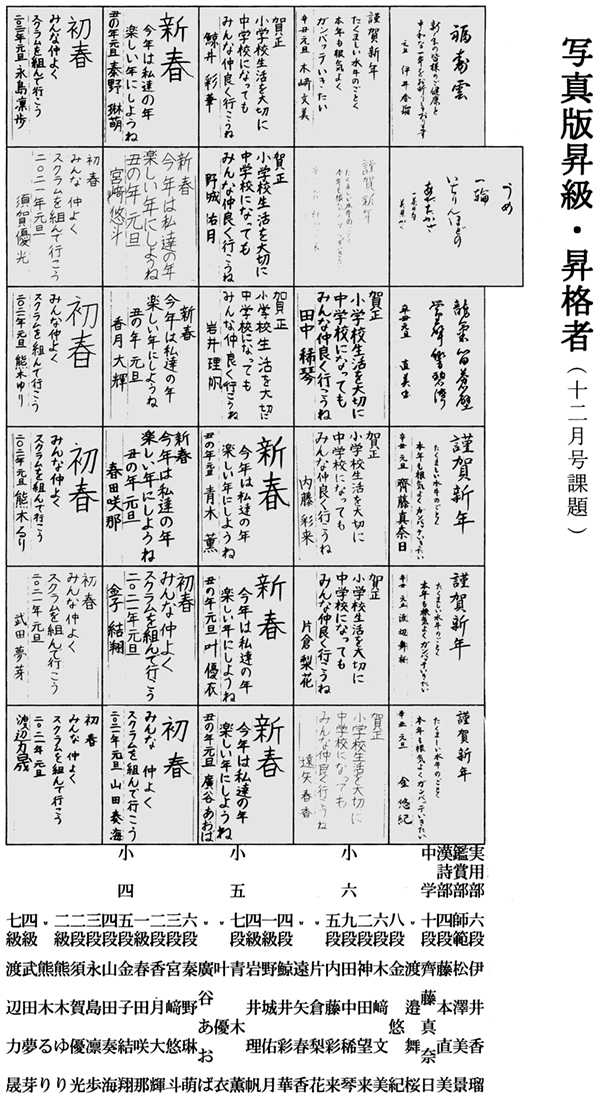 写真版昇級・昇格者(十二月号課題)
福寿雲
うめ
一輪
いちりんほどの
あたたかさ
謹賀新年
たくましい水牛のごとく
本年も根気よくガンバッていきたい
辛丑 元旦 齊藤真奈日
謹賀新年
たくましい水牛のごとく
本年も根気よくガンバッていきたい
謹賀新年
たくましい水牛のごとく
本年も根気よくガンバッていきたい
辛丑 元旦 金 悠紀
謹賀新年
たくましい水牛のごとく
本年も根気よく
ガンバッていきたい
辛丑元旦 木﨑文美
謹賀新年
賀正
小学校生活を大切に
中学校になっても
みんな仲良く行こうね
田中稀琴
賀正
小学校生活を大切に
中学校になっても
みんな仲良く行こうね
内藤彩来
賀正
小学校生活を大切に
中学校になっても
みんな仲良く行こうね
片倉梨花
賀正
小学校生活を大切に
中学校になっても
みんな仲良く行こうね
遠矢春香
賀正
小学校生活を大切に
中学校になっても
みんな仲良く行こうね
鯨井彩華
賀正
小学校生活を大切に
中学校になっても
みんな仲良く行こうね
野城佑月
賀正
小学校生活を大切に
中学校になっても
みんな仲良く行こうね
岩井理帆
新春
今年は私達の年
楽しい年にしようね
丑の年元旦 青木 薫
新春
今年は私達の年
楽しい年にしようね
丑の年元旦 叶 優衣
新春
今年は私達の年
楽しい年にしようね
丑の年元旦 廣谷あおば
新春
今年は私達の年
楽しい年にしようね
丑の年元旦 秦野琳萌
新春
今年は私達の年
楽しい年にしようね
丑の年 元旦
宮﨑悠斗
新春
今年は私達の年
楽しい年にしようね
丑の年 元旦
香月大輝
新春
今年は私達の年
楽しい年にしようね
丑の年 元旦
春田咲那
初春
みんな仲よく
スクラムを組んで行こう
二〇二一年 元旦
金子結翔
初春
みんな 仲よく
スクラムを組んで行こう
二〇二一年元旦 山田奏海
初春
みんな仲よく
スクラムを組んで行こう
二〇二一年元旦 永島凛歩
初春
みんな 仲よく
スクラムを組んで行こう
二〇二一年 元旦
須賀優光
初春
みんな仲よく
スクラムを組んで行こう
二〇二一年元旦 熊木ゆり
初春
みんな仲よく
スクラムを組んで行こう
二〇二一年元旦 熊木るり
初春
みんな仲よく
スクラムを組んで行こう
二〇二一年元旦
武田夢芽
初春
みんな仲よく
スクラムを組んで行こう
二〇二一年元旦
渡辺力晟
実用部 六段 伊井香瑠
鑑賞部 師範 松澤美景
漢詩部 四段 藤本直美
中学 十段 齊藤真奈日
〃 渡邉舞桜
八段 金悠紀
六段 木﨑文美
二段 神田望来
小六 九段 田中稀琴
五段 内藤彩来
〃 片倉梨花
〃 遠矢春香
四段 鯨井彩華
一段 野城佑月
四級 岩井理帆
小五 七段 青木薫
〃 叶優衣
〃 廣谷あおば
六段 秦野琳萌
三段 宮﨑悠斗
二段 香月大輝
一段 春田咲那
小四 五段 金子結翔
四段 山田奏海
三段 永島凛歩
二段 須賀優光
二級 熊木ゆり
〃 熊木るり
四級 武田夢芽
七級 渡辺力晟